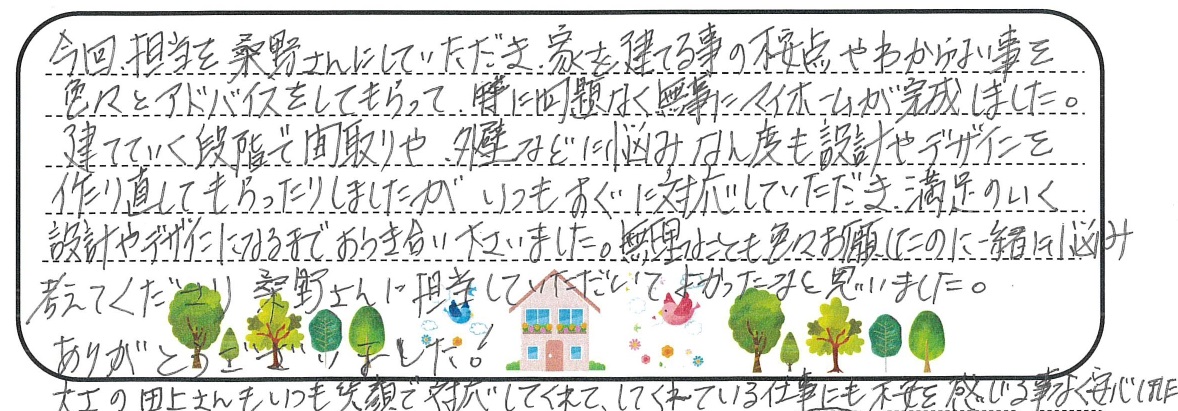 今回、担当を桑野さんにしていただき、家を建てる事の不安点やわからない事を
色々とアドバイスをしてもらって、特に問題なく無事にマイホームが完成しました。
建てていく段階で間取りや、外壁などに悩みなん度も設計やデザインを
作り直してもらったりしましたが いつもすぐに対応していただき、満足のいく
設計やデザインになるまでおつき合い下さいました。無理なことも色々お願いしたのに一緒に悩み
考えてくださり 桑野さんに担当していただいてよかったなと思いました。
ありがとうございました!
大工の田上さんもいつも笑顔で対応してくれて、してくれている仕事にも不安を感じる事なく安心